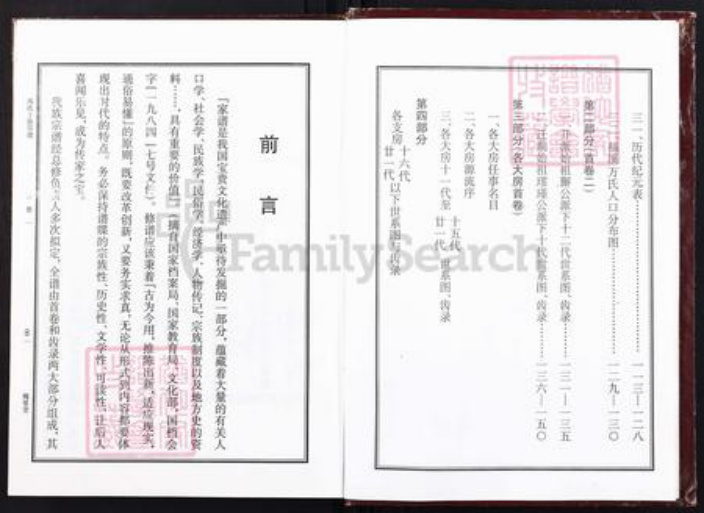 三一、历代纪元表……一一三—一二八
三二、福源万氏人口分布图……一二九—一三〇
第二部分(首卷二)
一、开派始祖解公派下十二代世系图、齿录……一三一—一三五
二、迁湘始祖瑾瑾公派下十代世系图、齿录……一三六—一五〇
第三部分(各大房首卷)
一、各大房任事名目
二、各大房源流序
三、各大房十一代至十五代廿一代世系图、齿录
第四部分
各支房十六代廿一代以下世系图与齿录
前言
「家谱是我国宝贵文化遗产中亟待发掘的一部分,蕴藏着大量的有关人
口学、社会学、民族学、民俗学、经济学、人物传记、宗族制度以及地方史的资
料……,具有重要的价值」(摘自国家档案局、国家教育局、文化部,国档会
字[一九八四]七号文件)。修谱应该秉着「古为今用,推陈出新,适应现实,
通俗易懂」的原则,既要改革创新,又要务实求真,无论从形式到内容都要体
现出时代的特点。务必保持谱牒的宗族性、历史性、文学性、可读性,让后人
喜闻乐见,成为传家之宝。
我族宗谱经总修负责人多次拟定,全谱由首卷和齿录两大部分组成,其
FamilySearch